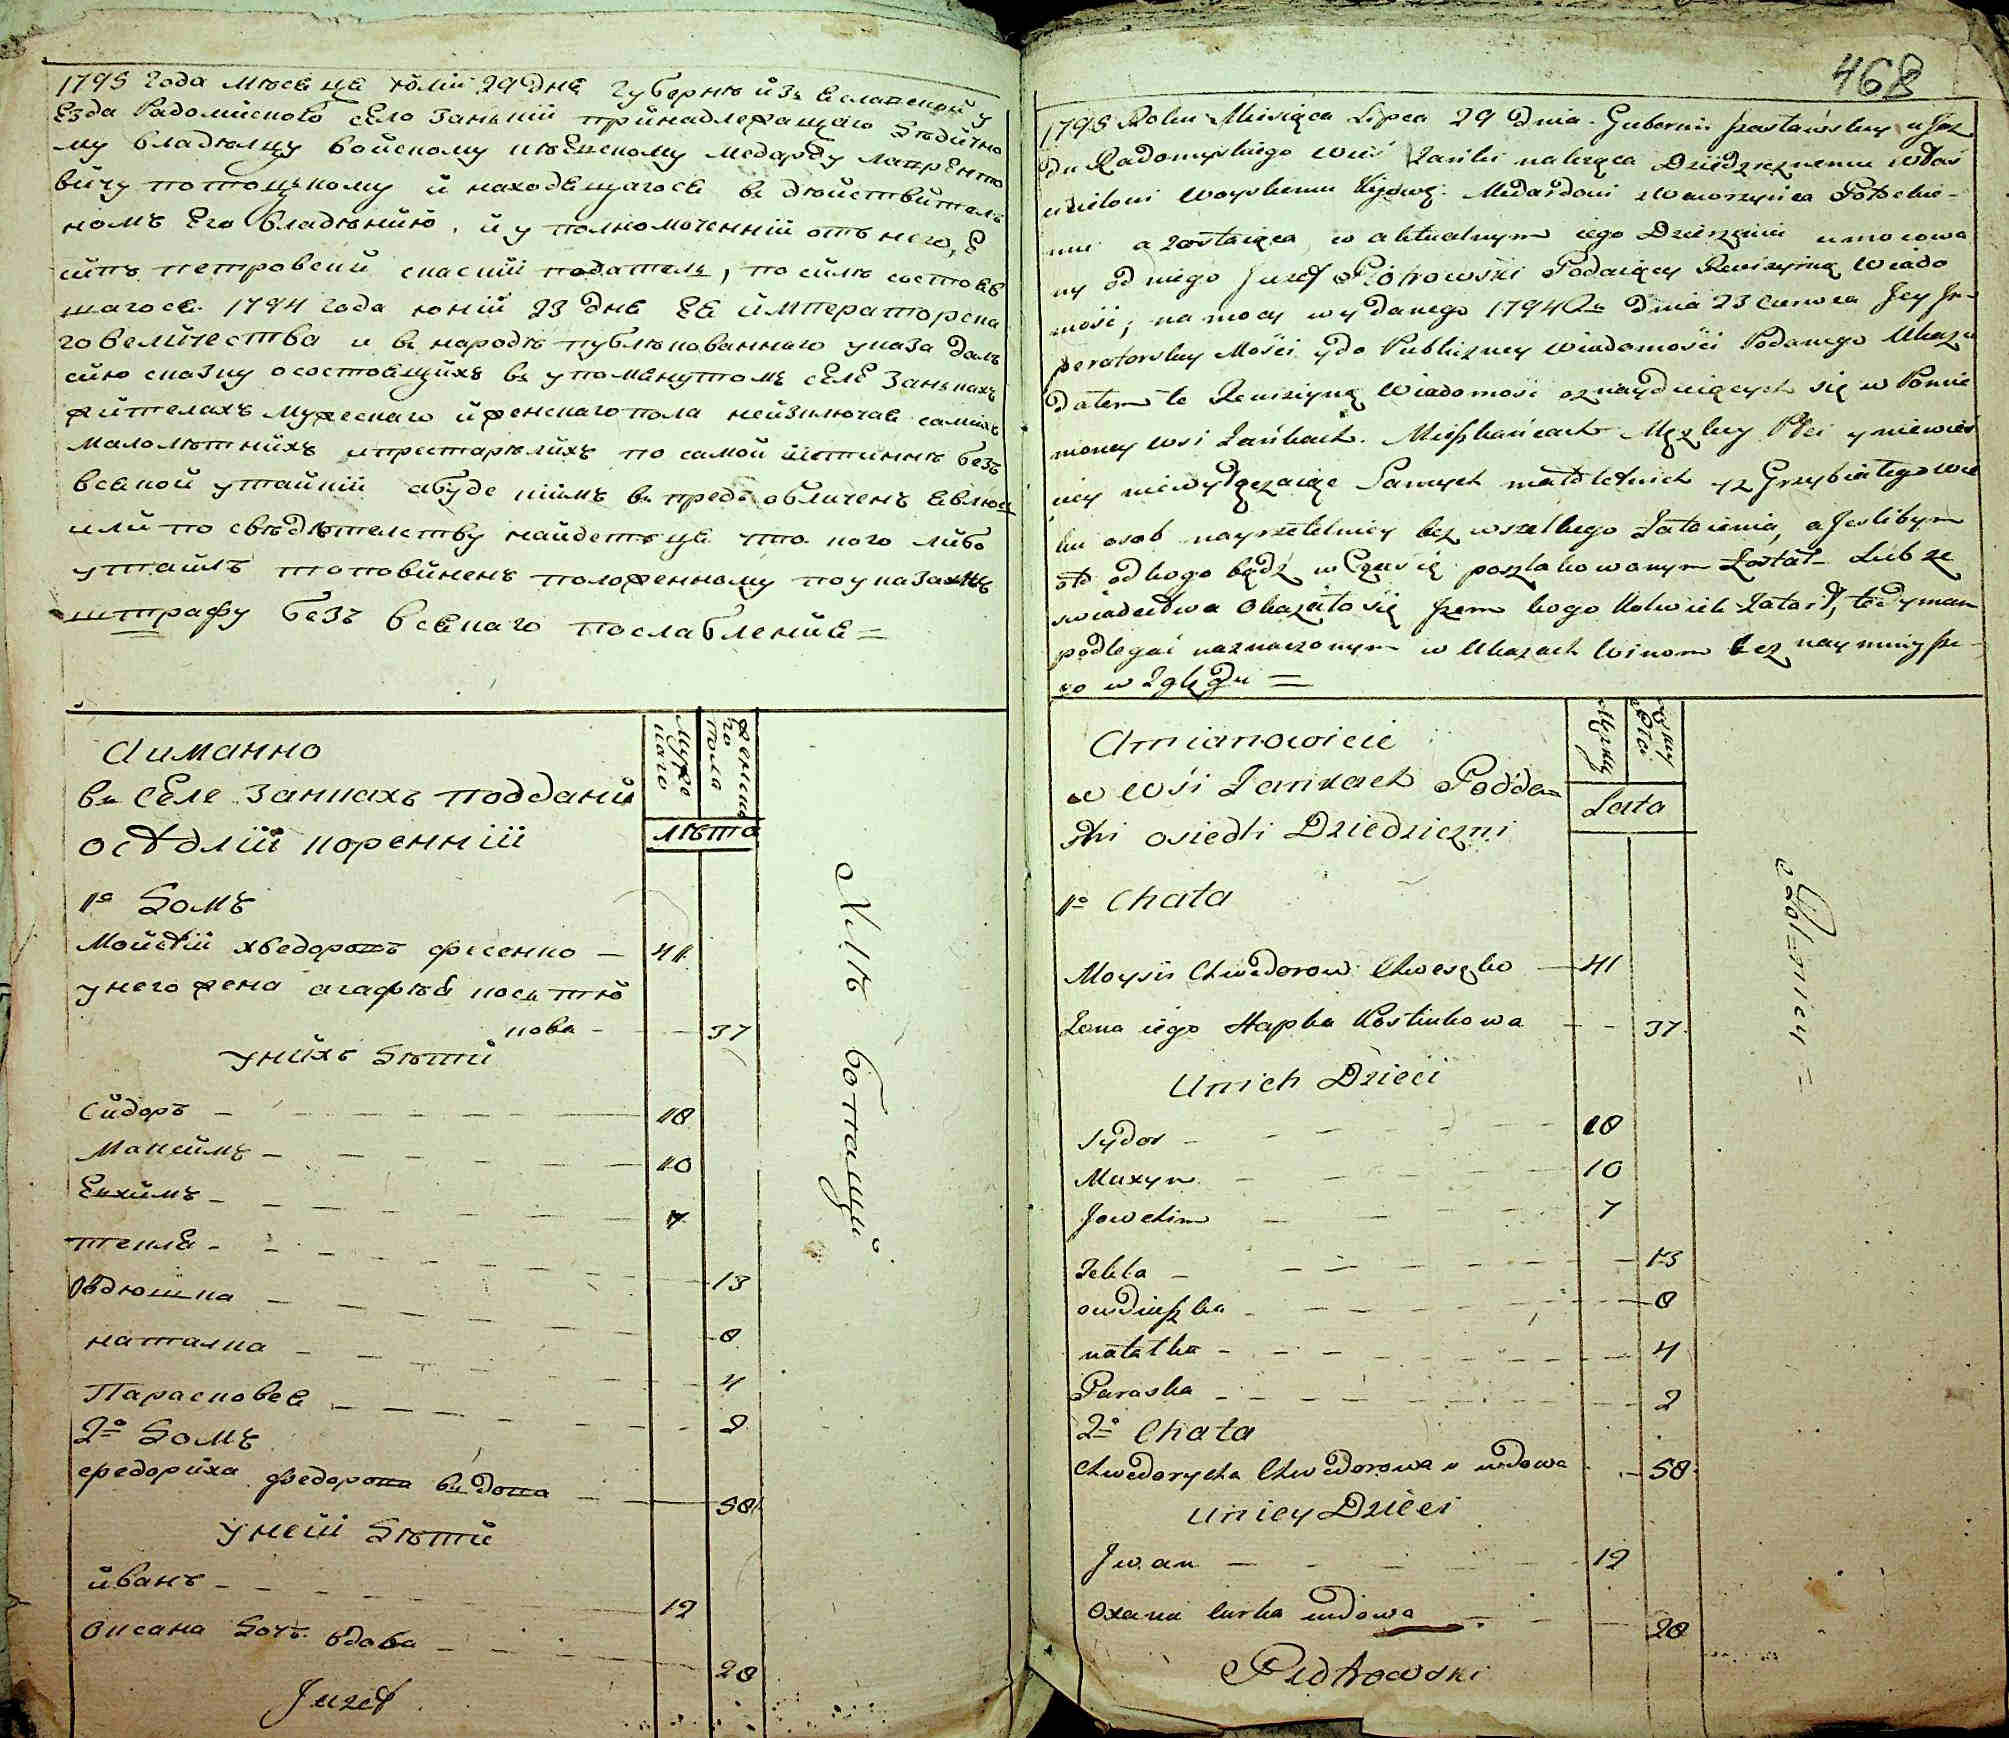 1795 года мѣсеца юлій 29 дня Губерніи Изяславской у
Езда Радомйского село Занькій принадлежащаго Дѣдично
му владѣлцу войскому кіевскому медарду лаврѣнтю
вйчу потоцькому й находящагося в дѣйствйтел
номъ Его владѣнйю, йуполномоченній отъ него, Е
сйпъ петровскій скаскій податель, по сйлѣ состояв
шагося 1794 года юній 23 дня Ея ймператорска
го велйчества и в народѣ публѣкованнаго указа даль
сйю сказку о состоящйхъ в упомянутомъ селѣ Занькахъ
жйтелахъ мужескаго йженскаго пола нейзключая самйхъ
малолѣтнйхъ ипрестарѣлйхъ по самой йстиннѣ безъ
всякой утайкій абуде кймъ в предъ облйченъ явлюся
илй по свѣдѣтелству найдетца что кого лйбо
утайлъ то повйненъ положенному по указахъ
штрафу безъ всякаго послабленйя =
Аиманно
в Селе Занкахъ поддани
осѣдлій коренній
мужескаго
женскаго пола
лѣта
1о Домъ
Мойсѣй хведоровъ фесенко — 41
у него жена агафѣя косьтю
кова — 37
Унйхъ Дѣтй
Сйдоръ — 18
Максймъ — 10
Евхймъ — 7
текля — 13
Овдюшка — 8
наталка — 4
Парасковея — 2
2о Домъ
Федорйха федорова вдова — 58
Уней Дѣтй
йванъ — 12
Оксана Дочъ вдова — 28
Juzef
468
1795 Roku Miesiąca Lipca 29 Dnia. Gubernii Jzasławskey uJez
du Radomyskiego Wieś Zańki należąca Dziedzicznemu właś
cicielowi Woyskiemu Kijowg: Medardowi z Wawrzyńca Potockie-
mu a zostaiąca w aktualnym iego Dzierżeniu umocowa
ny od niego Juzef Piotrowski Podaiący Rewizyiną Wiado
mość, na mocy wydanego 1794 Ru Dnia 23 Czerwca Jey Jm-
peratorskiey Mości ydo Publiczney wiadomości Podanego Ukazu
datem te Rewizyiną Wiadomość oznayduiących się w Pomie
nioney wsi Zańkach. Mieszkańcach Męzkiey Płci y niewieś
ciey niewyłączaiąc Samych małoletnich yz Grzybiałego wie
ku osob nayrzetelniey bez wszelkiego Zataienia, a Jeslibym
oto od kogo bądź w Czasie poszlakowanym Został Lub ze
świadectwa Okazałosię żem kogo kolwiek Zataił, tedy mam
podlegać naznaczonym w Ukazach Winom bez naymnieysze-
go względu =
Amianowicie
w wśi Zankach Podda=
ni osiedli Dziedziczni
Lata
1o Chata
Moysiy Chwedorow Chweszko — 41
Zona iego Hapka Kostiukowa — 37
Unich Dzieci
Sydor — 18
Maxym — 10
Jowchim — 7
Tekla — 13
owdiuszka — 8
natalka — 4
Paraska — 2
2o Chata
Chwedorycha Chwedorowa wdowa — 58
Uniey Dzieci
Jwan — 12
Oxana Curka wdowa — 28
Piotrowski